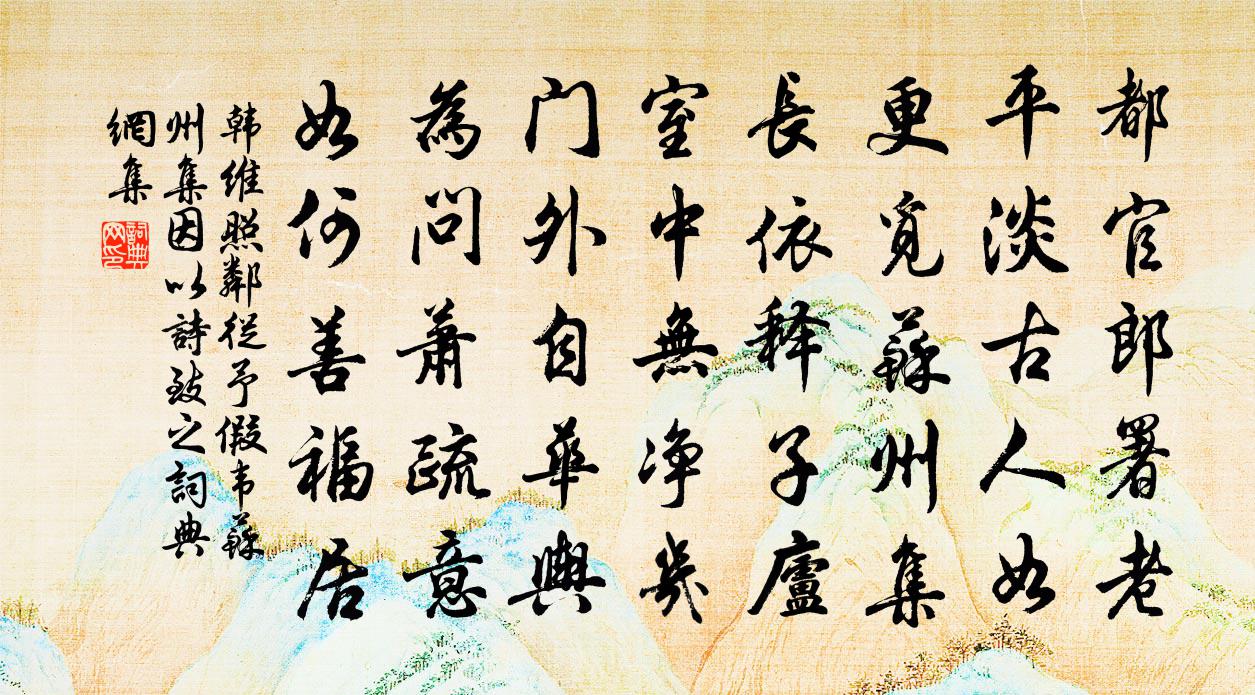 都官郎署老
平淡古人如
更覓蘇州集
長依释子廬
室中無净幾
门外自華輿
為問蕭疏意
如何善福居
韩维照鄰從予假韦蘇
州集因以詩致之詞典
網集
詞典
网印